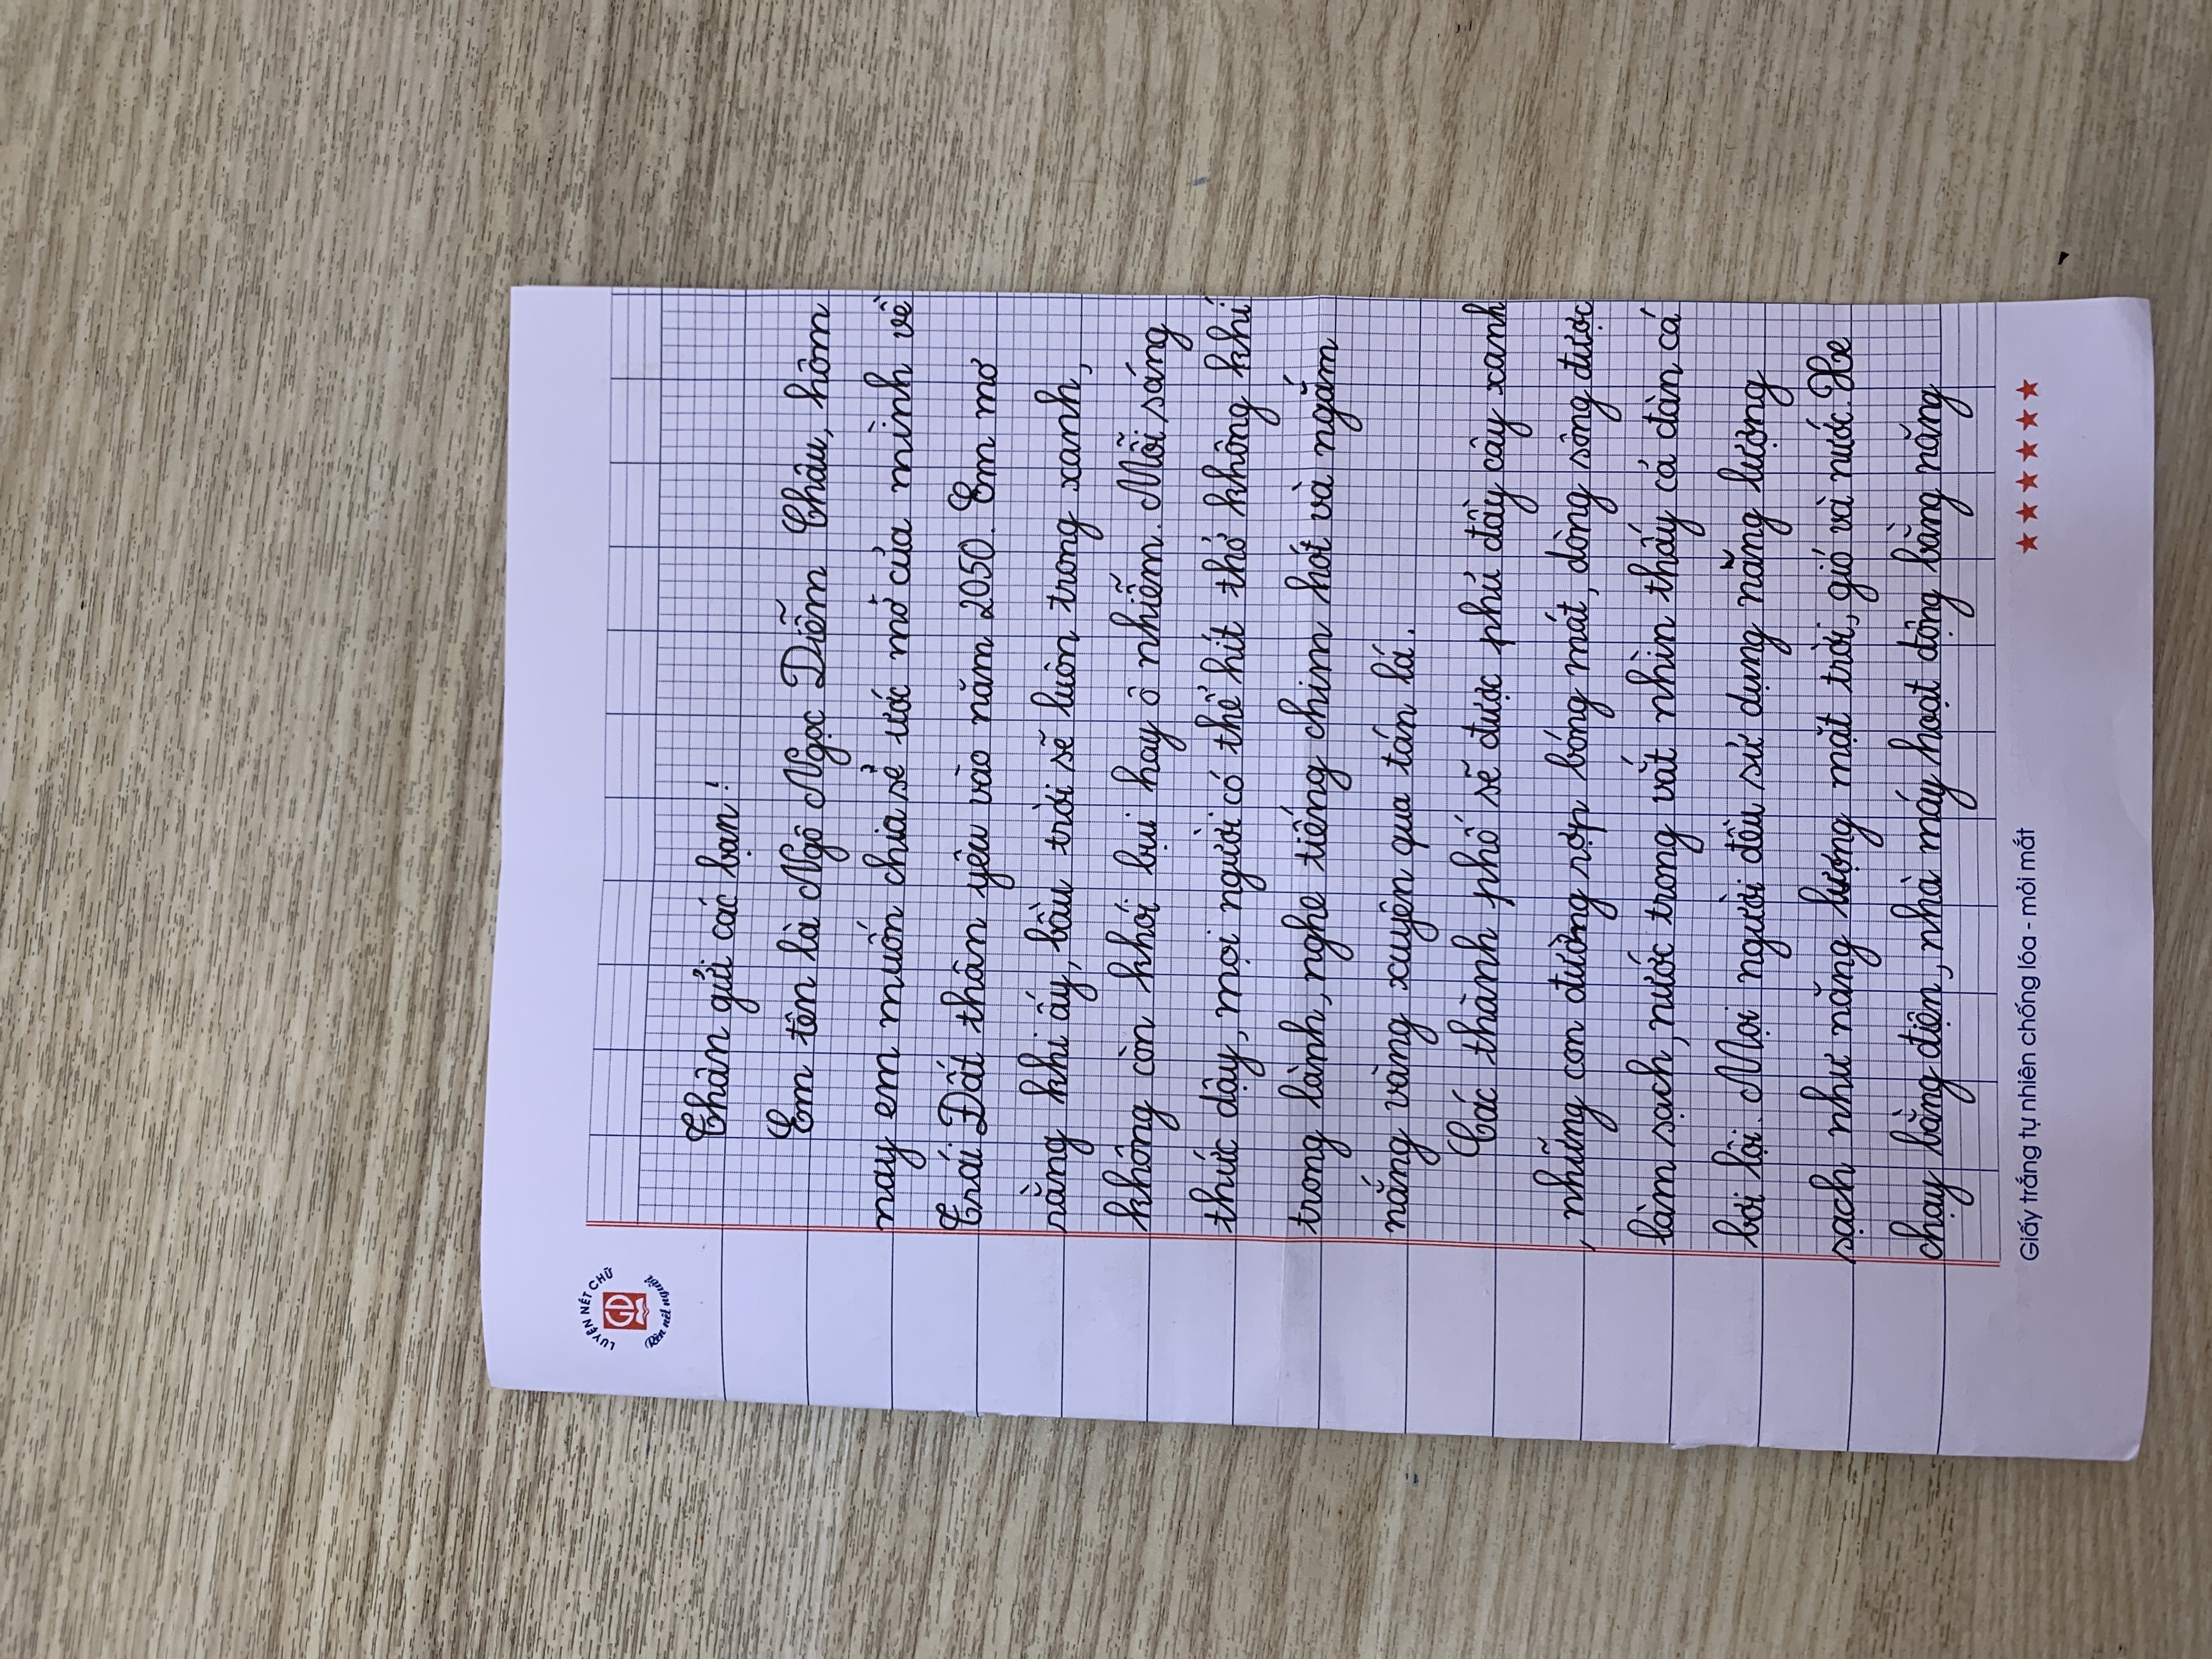 LUYỆN NÉT CHỮ
GD
Rèn nết người
Thân gửi các bạn!
Em tên là Ngô Ngọc Diễm Châu, hôm
nay em muốn chia sẻ ước mơ của mình về
Trái Đất thân yêu vào năm 2050. Em mơ
rằng khi ấy, bầu trời sẽ luôn trong xanh,
không còn khói bụi hay ô nhiễm. Mỗi sáng
thức dậy, mọi người có thể hít thở không khí
trong lành, nghe tiếng chim hót và ngắm
nắng vàng xuyên qua tán lá.
Các thành phố sẽ được phủ đầy cây xanh
, những con đường rợp bóng mát, dòng sông được
làm sạch, nước trong vắt nhìn thấy cả đàn cá
bơi lội. Mọi người đều sử dụng năng lượng
sạch như năng lượng mặt trời, gió và nước. Xe
chạy bằng điện, nhà máy hoạt động bằng năng
Giấy trắng tự nhiên chống lóa - mỏi mắt